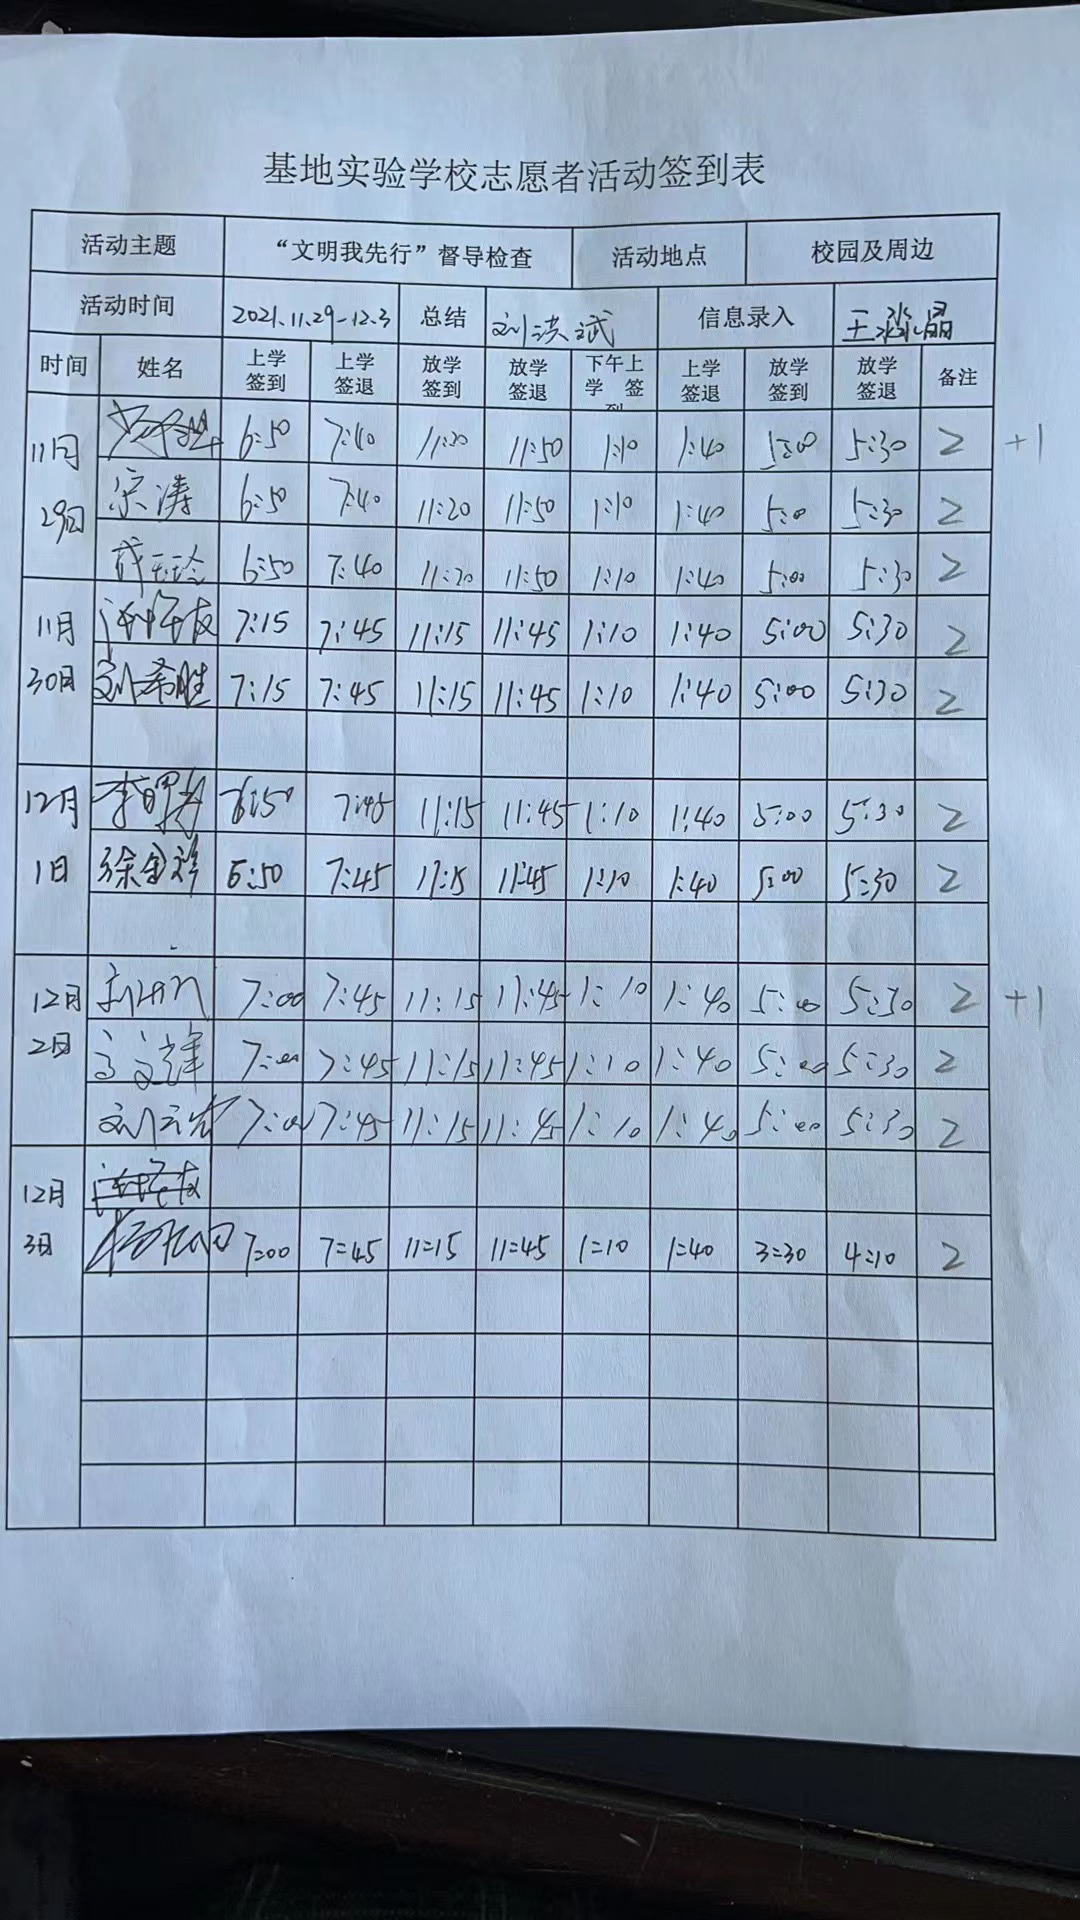 基地实验学校志愿者活动签到表
活动主题 “文明我先行”督导检查 活动地点 校园及周边
活动时间 2021.11.29-12.3 总结 刘洪斌 信息录入 王淼晶
时间 姓名 上学签到 上学签退 放学签到 放学签退 下午上学 签到 上学签退 放学签到 放学签退 备注
11月29日 6:50 7:40 11:20 11:50 1:10 1:40 5:00 5:30 2 +1
宗涛 6:50 7:40 11:20 11:50 1:10 1:40 5:0 5:30 2
6:50 7:40 11:20 11:50 1:10 1:40 5:00 5:30 2
11月30日 7:15 7:45 11:15 11:45 1:10 1:40 5:00 5:30 2
刘希胜 7:15 7:45 11:15 11:45 1:10 1:40 5:00 5:30 2
12月1日 6:50 7:45 11:15 11:45 1:10 1:40 5:00 5:30 2
徐金祥 6:50 7:45 11:15 11:45 1:10 1:40 5:00 5:30 2
12月2日 7:00 7:45 11:15 11:45 1:10 1:40 5:00 5:30 2 +1
7:00 7:45 11:15 11:45 1:10 1:40 5:00 5:30 2
7:00 7:45 11:15 11:45 1:10 1:40 5:00 5:30 2
12月3日
7:00 7:45 11:15 11:45 1:10 1:40 3:30 4:10 2